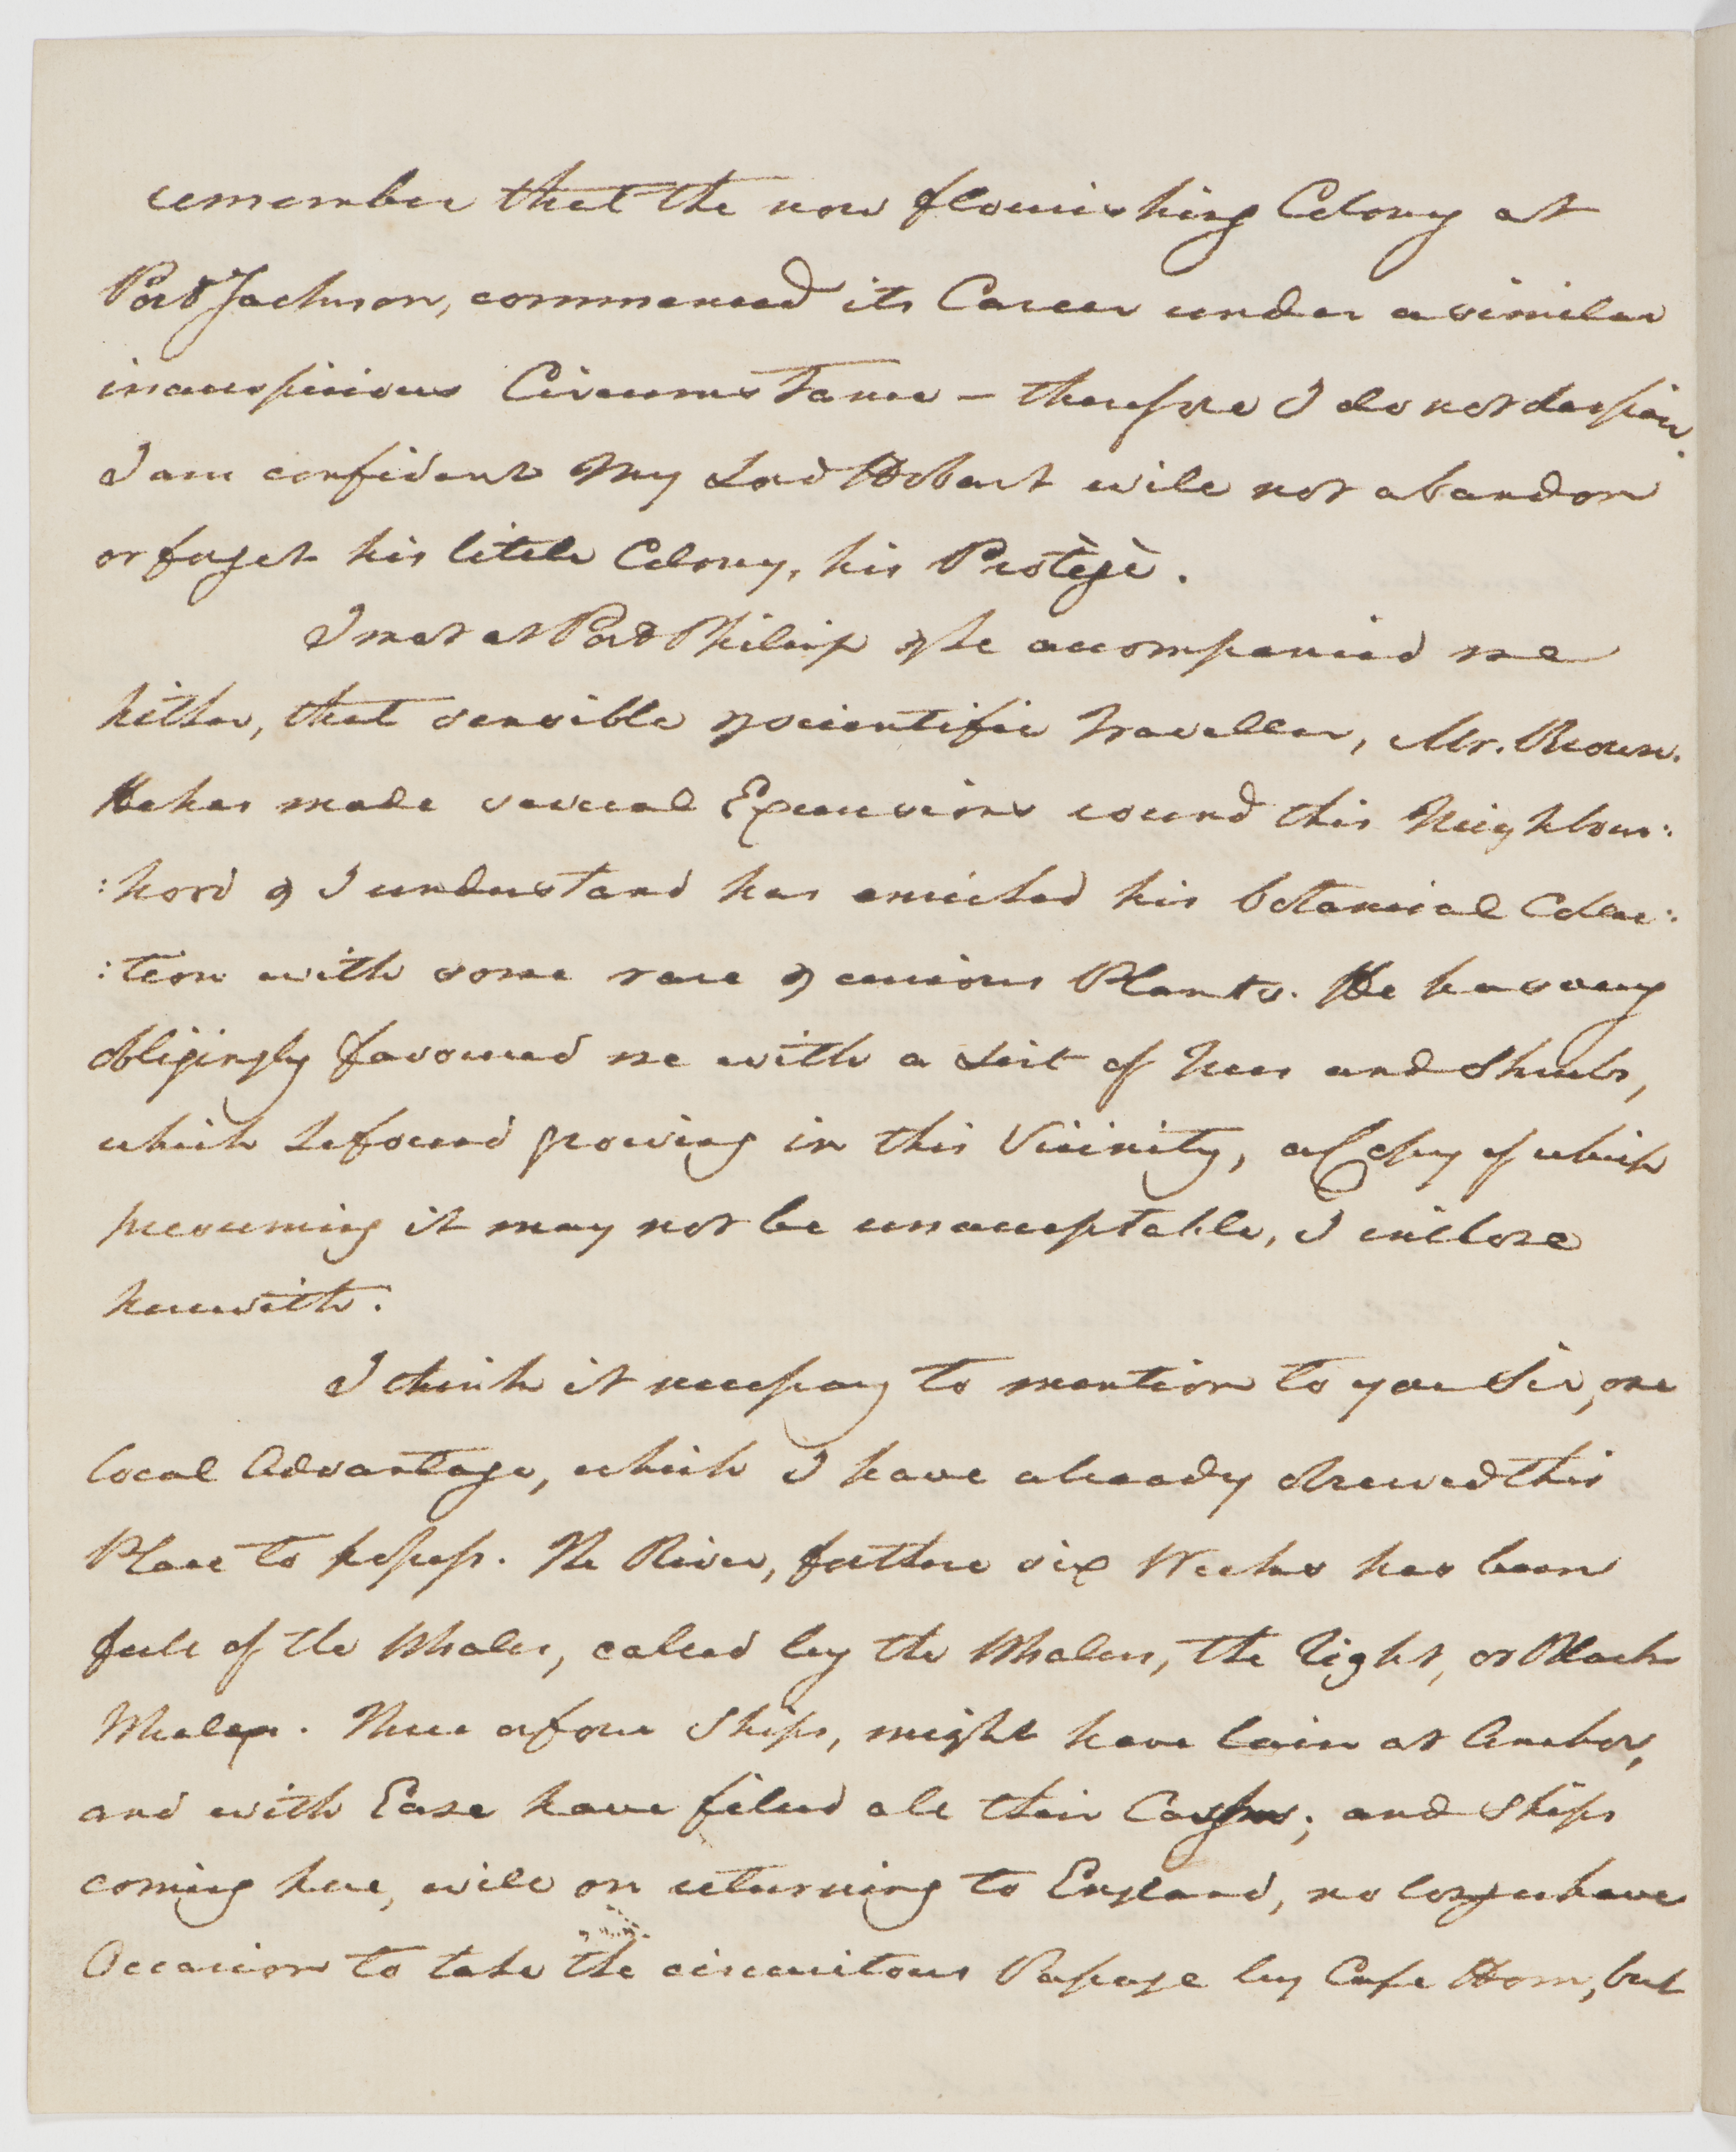 remember that the now flourishing Colony at
Port Jackson, commenced its Career under a similar
inauspicious Circumstance - therefore I do not despair.
I am confident My Lord Hobart will not abandon
or forget his little Colony, his Protègè.
I met at Port Philip & he accompanied me
hither, that sensible & scientific Traveller, Mr. Brown.
He has made several Excursions round this Neighbour:
:hood & I understand has enriched his botanical Collec:
:tion with some rare & curious Plants. He has very
obligingly favoured me with a List of Trees and Shrubs,
which he found growing in this Vicinity, a Copy of which
presuming it may not be unacceptable, I enclose
herewith.
I think it necessary to mention to you Sir, one
local Advantage, which I have already observed this
Place to possess. The River, for these six Weeks has been
full of the Whales, called by the Whalers, the right, or Black
Whale. Three or four Ships, might have lain at Anchor,
and with Ease have filled all their Casks; and Ships
coming here, will on returning to England, no longer have
Occasion to take the circuitous Passage by Cape Horn, but